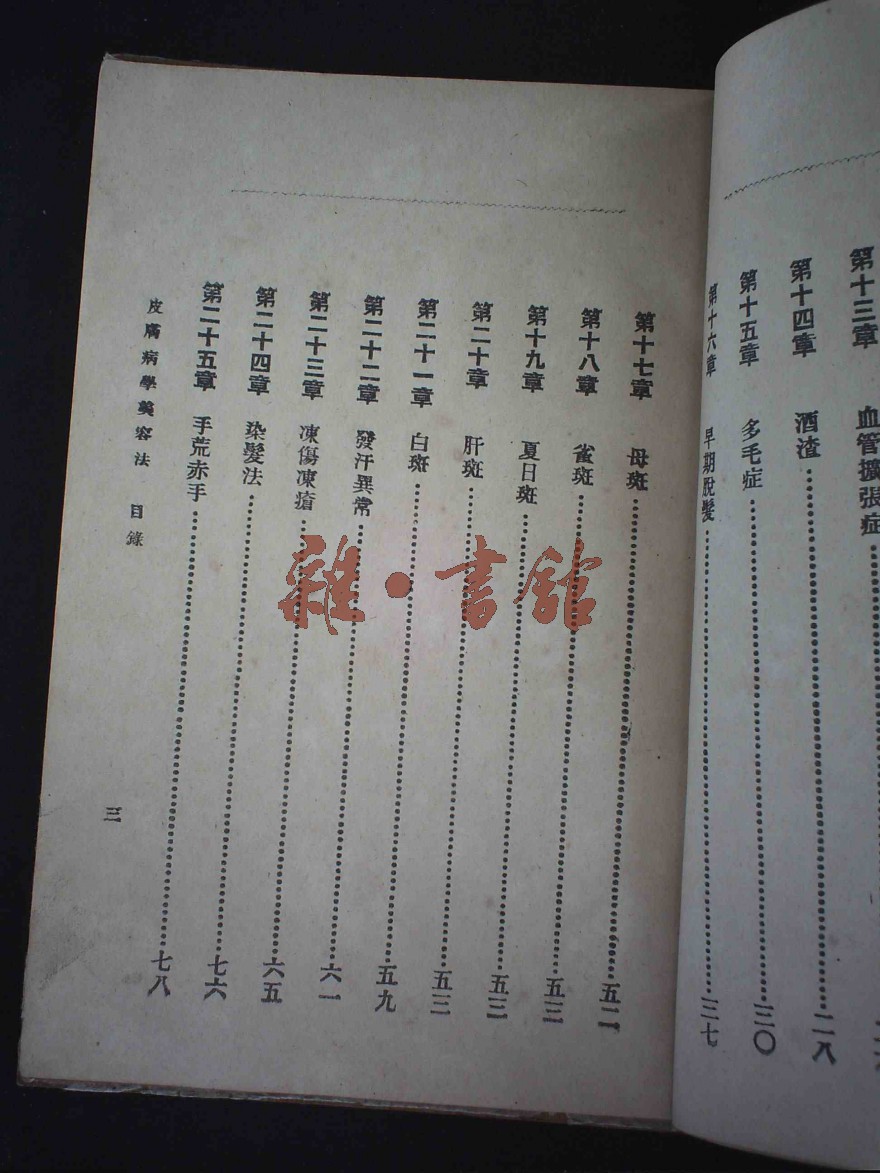 第十三章 血管擴張症
第十四章 酒渣……二八
第十五章 多毛症……三〇
第十六章 早期脫髮……三七
第十七章 母斑……五二
第十八章 雀斑……五三
第十九章 夏日斑……五三
第二十章 肝斑……五三
第二十一章 白斑……五九
第二十二章 發汗異常……六一
第二十三章 凍傷凍瘡……六五
第二十四章 染髮法……七六
第二十五章 手荒赤手……七八
皮膚病學美容法 目錄
三
雜·書館